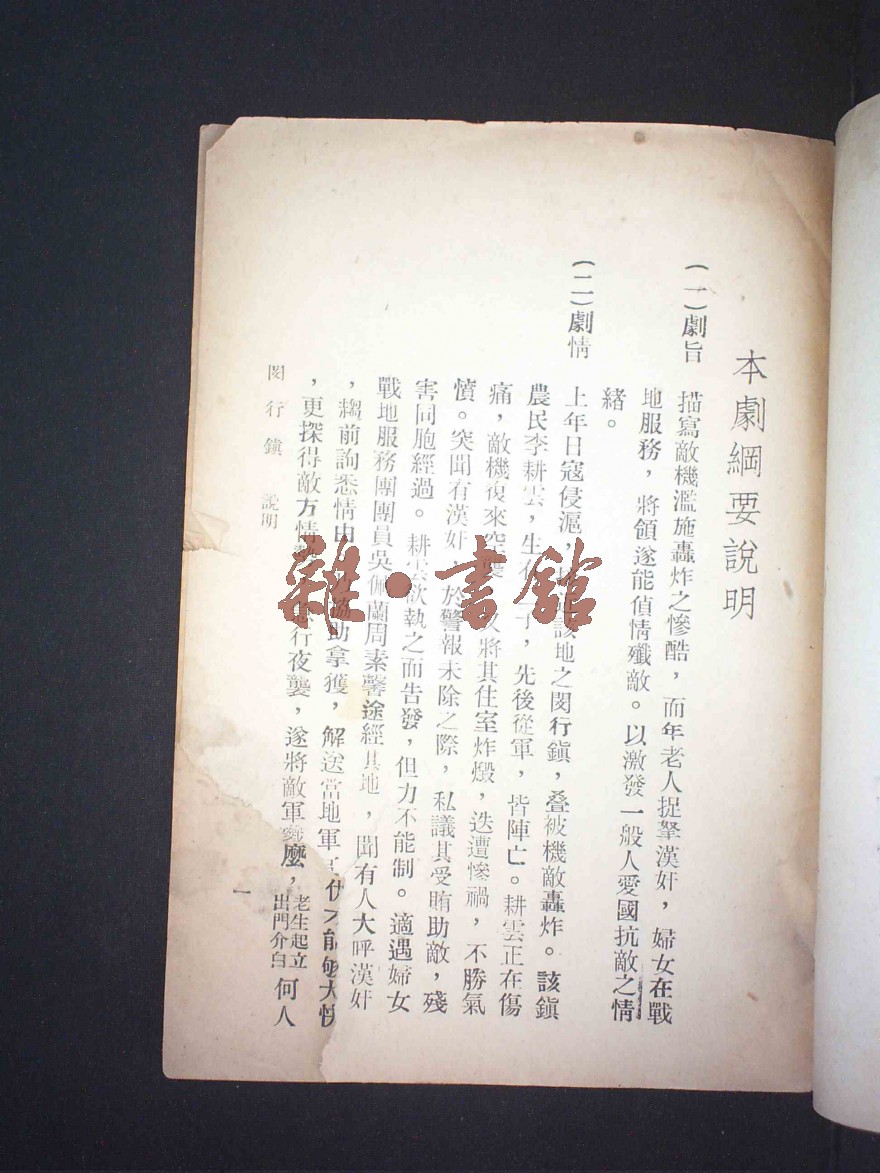 本劇綱要說明
(一)劇旨 描寫敵機濫施轟炸之慘酷,而年老人捉拏漢奸,婦女在戰
地服務,將領遂能偵情殲敵。以激發一般人愛國抗敵之情
緒。
(二)劇情 上年日寇侵滬,該地之閔行鎭,叠被機敵轟炸。該鎭
農民李耕雲,生有子,先後從軍,皆陣亡。耕雲正在傷
痛,敵機復來空襲又將其住室炸燬,迭遭慘禍,不勝氣
憤。突聞有漢奸於警報未除之際,私議其受賄助敵,殘
害同胞經過。耕雲欲執之而告發,但力不能制。適遇婦女
戰地服務團團員吳佩蘭周素馨途經其地,聞有人大呼漢奸
,趨前詢悉情由協助拿獲,解送當地軍
,更探得敵方情行夜襲,遂將敵軍
麼,老生起立出門介白何人
閔行鎭 說明
一
雜·書館